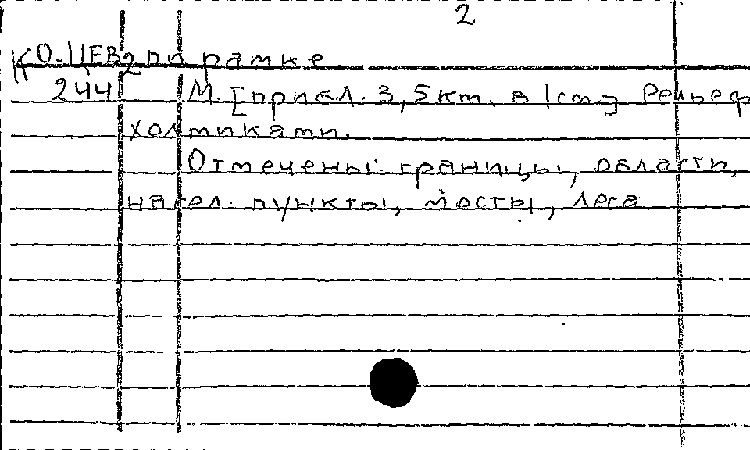 2
КО-ЦЕВ2 по рамке
244
М. [прибл. 3,5 км. в 1 см.] Рельеф
холмиками.
Отмечены: границы, области,
насел. пункты, мосты, леса